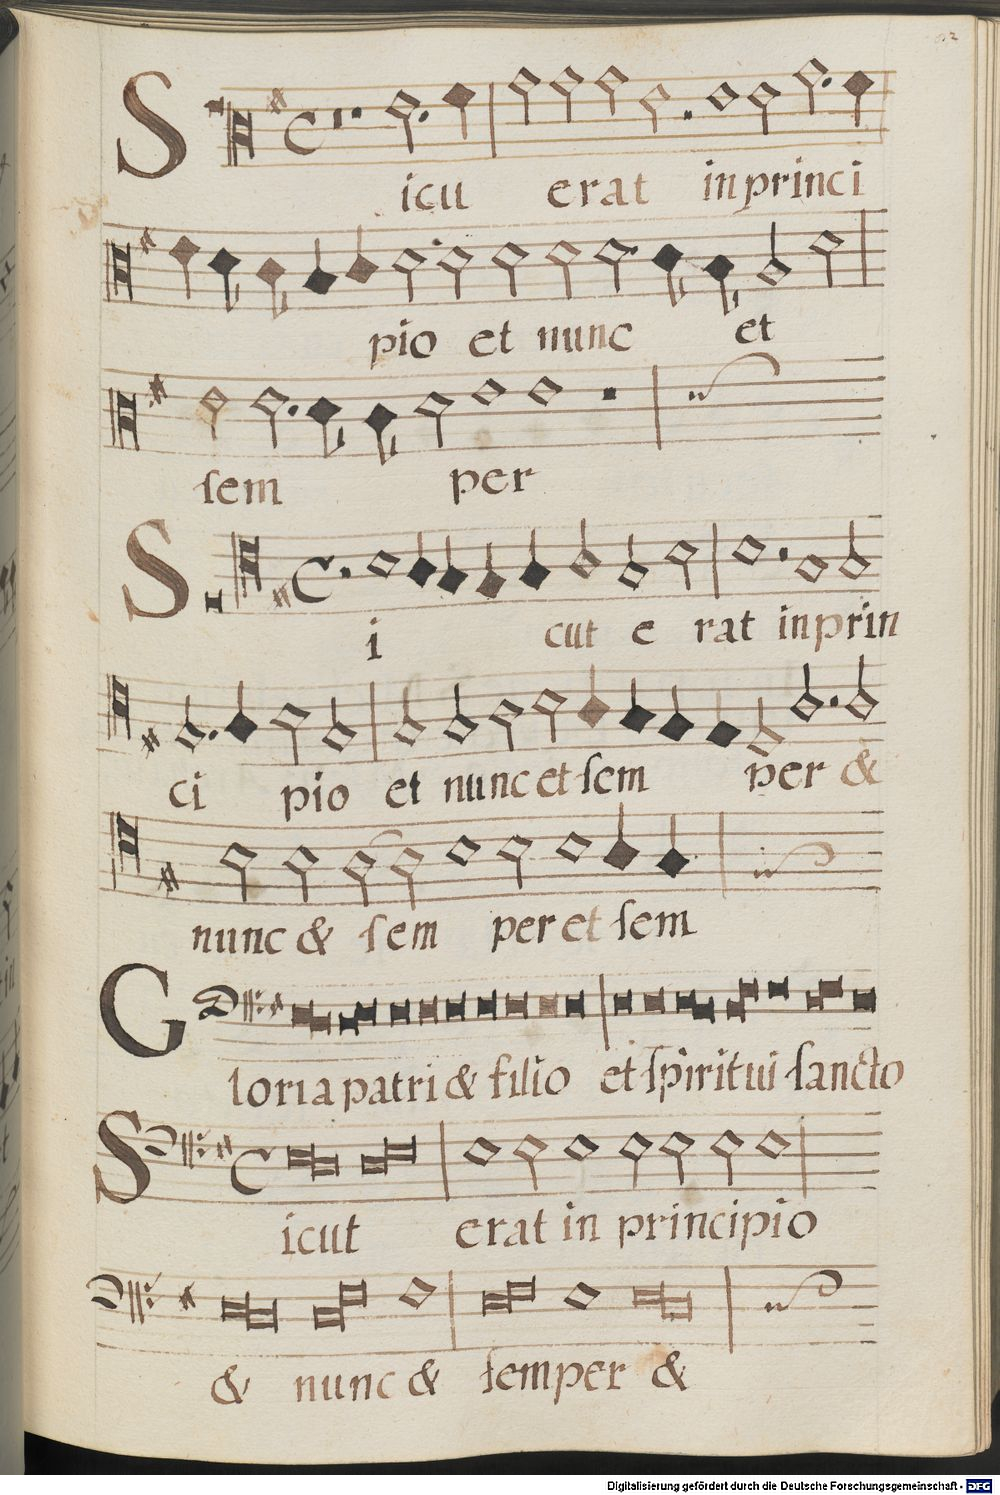 Sicu erat in princi
pio et nunc et
sem per
Si cut e rat in prin
ci pio et nunc et sem per &
nunc & sem per et sem
Gloria patri & filio et spiritui sancto
Sicut erat in principio
& nunc & semper &
Digitalisierung gefördert durch die Deutsche Forschungsgemeinschaft - DFG